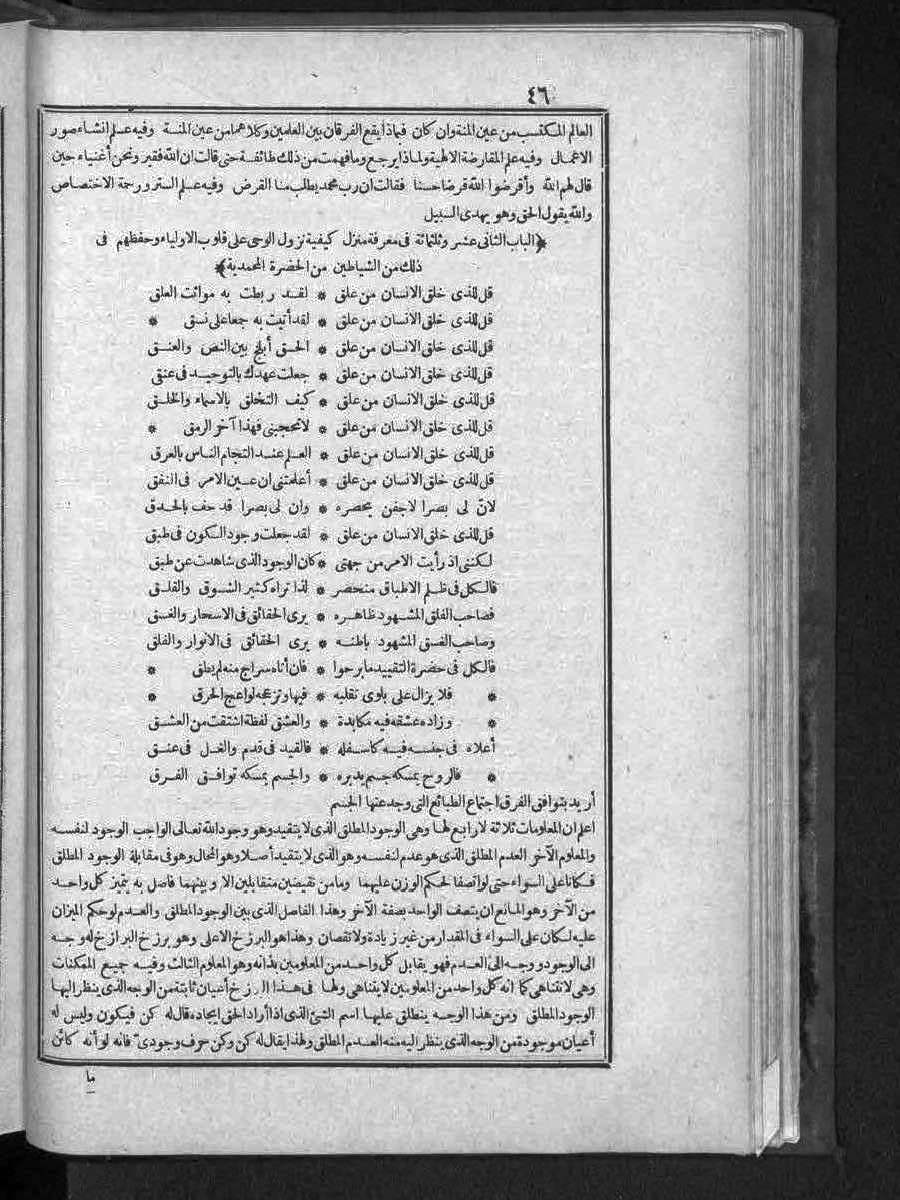 ٤٦
العالم المكتسب من عين المنة وان كان فبماذا يقع الفرقان بين العلمين وكلاهما من عين المنة وفيه علم انشاء صور
الاعمال وفيه علم المقارضة الالهية ولماذا يرجع وما فهمت من ذلك طائفة حتى قالت ان الله فقير ونحن أغنياء حين
قال لهم الله وأقرضوا الله قرضا حسنا فقالت ان رب محمد يطلب منا القرض وفيه علم الستر ورحمة الاختصاص
والله يقول الحق وهو يهدى السبيل
﴿الباب الثانى عشر وثلثمائة فى معرفة منزل كيفية نزول الوحى على قلوب الاولياء وحفظهم فى
ذلك من الشياطين من الحضرة المحمدية﴾
قل للذى خلق الانسان من علق * لقد ربطت به مواثت العلق
قل للذى خلق الانسان من علق * لقد أتيت به جمعا على نسق *
قل للذى خلق الانسان من علق * الحق أبلج بين النص والعنق
قل للذى خلق الانسان من علق * جعلت عهدك بالتوحيد فى عنقى
قل للذى خلق الانسان من علق * كيف التخلق بالاسماء والخلق
قل للذى خلق الانسان من علق * لا تحجبنى فهذا آخر الرمق *
قل للذى خلق الانسان من علق * العلم عند التجام الناس بالعرق
قل للذى خلق الانسان من علق * أعلمتنى ان عين الامر فى النفق
لان لى بصرا لا جفن يحصره * وان لى بصرا قد حف بالحدق
قل للذى خلق الانسان من علق * لقد جعلت وجود الكون فى طبق
لكننى اذ رأيت الامر من جهتى * كان الوجود الذى شاهدت عن طبق
فالكل فى ظلم الاطباق منحصر * لذا تراه كثير الشوق والقلق
فصاحب الفلق المشهود ظاهره * يرى الحقائق فى الاسحار والغسق
وصاحب الغسق المشهود باطنه * يرى الحقائق فى الانوار والفلق
فالكل فى حضرة التقييد ما برحوا * فان أتاه سراج منه لم يطق *
* فلا يزال على بلوى تقلبه * فيها وتزعجه لواعج الحرق *
* وزاده عشقه فيه مكابدة * والعشق لفظة اشتقت من العشق
أعلاه فى جنسه فيه كاسفله * فالقيد فى قدم والغل فى عنق
* فالروح يمسكه جسم يدبره * والجسم يمسكه توافق الفرق
أريد بتوافق الفرق اجتماع الطبائع التى وجد عنها الجسم
اعلم ان المعلومات ثلاثة لا رابع لها وهى الوجود المطلق الذى لا يتقيد وهو وجود الله تعالى الواجب الوجود لنفسه
والمعلوم الآخر العدم المطلق الذى هو عدم لنفسه وهو الذى لا يتقيد أصلا وهو المحال وهو فى مقابلة الوجود المطلق
فكانا على السواء حتى لو اتصفا لحكم الوزن عليهما وما من نقيضين متقابلين الا وبينهما فاصل به يتميز كل واحد
من الآخر وهو المانع ان يتصف الواحد بصفة الآخر وهذا الفاصل الذى بين الوجود المطلق والعدم لو حكم الميزان
عليه لكان على السواء فى المقدار من غير زيادة ولا نقصان وهذا هو البرزخ الاعلى وهو برزخ البرازخ له وجه
الى الوجود ووجه الى العدم فهو يقابل كل واحد من المعلومين بذاته وهو المعلوم الثالث وفيه جميع الممكنات
وهى لا تتناهى كما انه كل واحد من المعلومين لا يتناهى ولها فى هذا البرزخ أعيان ثابتة من الوجه الذى ينظر اليها
الوجود المطلق ومن هذا الوجه ينطلق عليها اسم الشئ الذى اذا أراد الحق ايجاده قال له كن فيكون وليس له
أعيان موجودة من الوجه الذى ينظر اليه منه العدم المطلق ولهذا يقال له كن وكن حرف وجودى فانه لو أنه كائن
ما